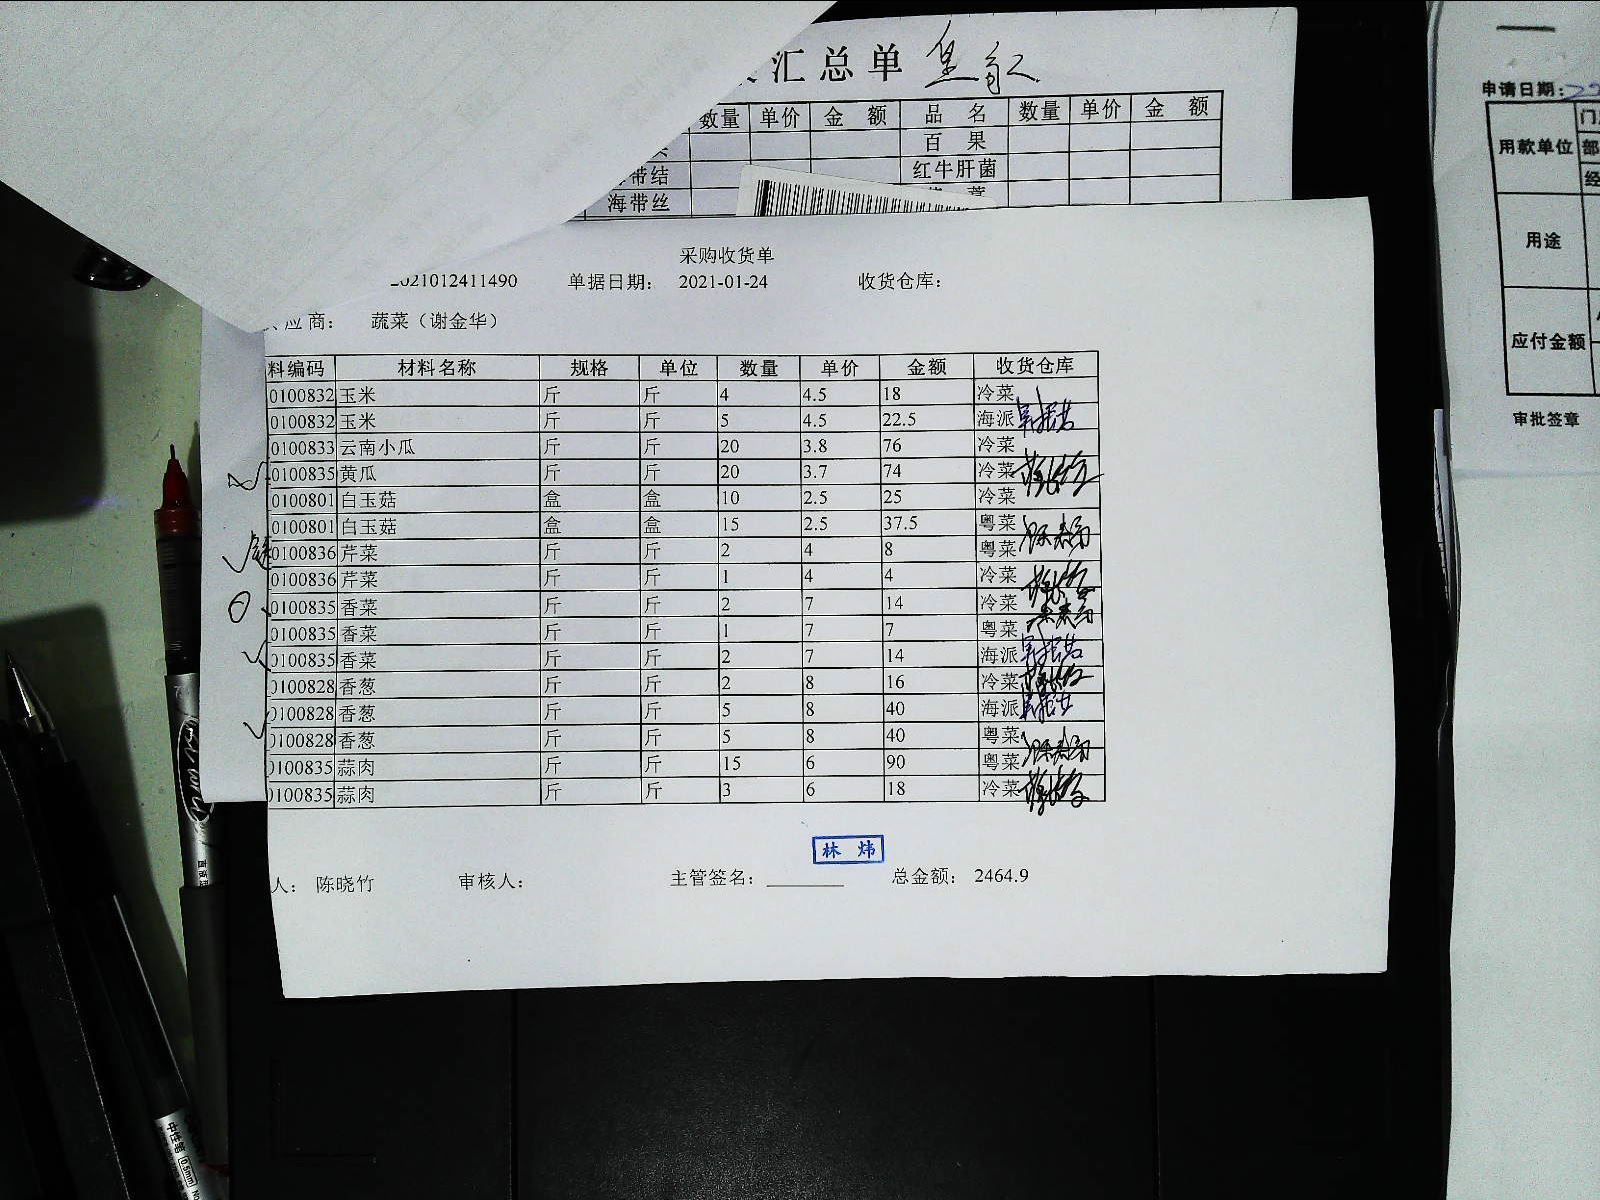 汇总单
数量 单价 金 额 品 名 数量 单价 金 额
百 果
带结 红牛肝菌
海带丝
采购收货单
2021012411490 单据日期： 2021-01-24 收货仓库：
应商： 蔬菜（谢金华）
料编码 材料名称 规格 单位 数量 单价 金额 收货仓库
0100832 玉米 斤 斤 4 4.5 18 冷菜
0100832 玉米 斤 斤 5 4.5 22.5 海派
0100833 云南小瓜 斤 斤 20 3.8 76 冷菜
0100835 黄瓜 斤 斤 20 3.7 74 冷菜
0100801 白玉菇 盒 盒 10 2.5 25 冷菜
0100801 白玉菇 盒 盒 15 2.5 37.5 粤菜
0100836 芹菜 斤 斤 2 4 8 粤菜
0100836 芹菜 斤 斤 1 4 4 冷菜
0100835 香菜 斤 斤 2 7 14 冷菜
0100835 香菜 斤 斤 1 7 7 粤菜
0100835 香菜 斤 斤 2 7 14 海派
0100828 香葱 斤 斤 2 8 16 冷菜
0100828 香葱 斤 斤 5 8 40 海派
0100828 香葱 斤 斤 5 8 40 粤菜
0100835 蒜肉 斤 斤 15 6 90 粤菜
0100835 蒜肉 斤 斤 3 6 18 冷菜
林 炜
人： 陈晓竹 审核人： 主管签名： 总金额： 2464.9
申请日期：
用款单位
用途
应付金额
审批签章
中性笔 0.5mm